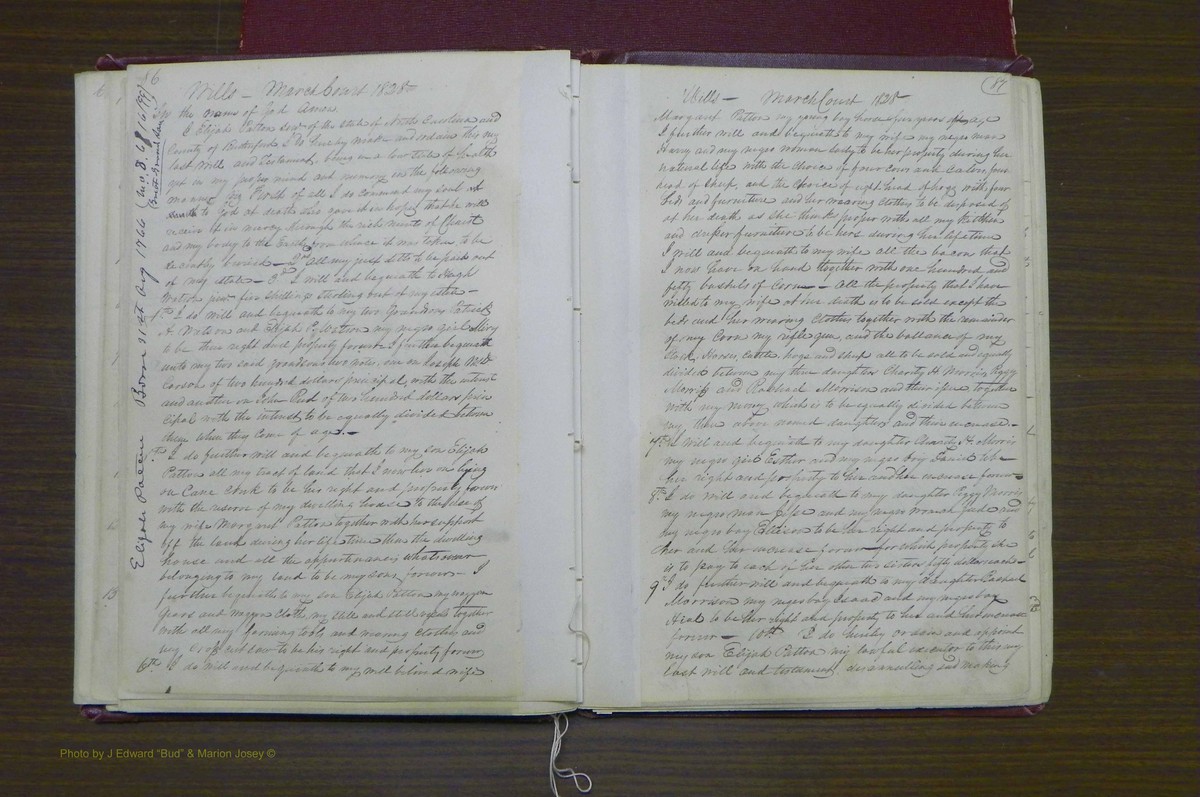 86
Wills – March Court 1828
In the name of God Amen
I Elijah Patton Senr of the State of North Carolina and
County of Rutherford I do hereby make and ordain this my
last Will and Testament being in a low state of health
yet in my proper mind and memory in the following
manner First of all I do commend my soul
to God at death who gave it in hopes that he will
receive it in mercy through the rich merits of Christ
and my body to the Earth from whence it was taken to be
decently buried – 2nd all my just debts to be paid out
of my estate – 3rd I will and bequeath to Hugh
Watson five shillings Sterling out of my estate –
4th I do will and bequeath to my two Grandsons Patrick
A. Watson and Elijah P. Watson my negro girl Miry
to be their right and property forever I further bequeath
unto my two said grandsons two notes, one on Joseph McD
Carson of two hundred dollars principal with the interest
and another on John Reid of two hundred dollars prin
cipal with the interest to be equally divided between
them when they come of age –
5th I do further will and bequeath to my son Elijah
Patton all my tract of land that I now live on lying
on Cane Creek to be his right and property forever
with the reserve of my dwelling house to the use of
my wife Margaret Patton together with her support
off the land during her life time then the dwelling
house and all the appurtenances whatsoever
belonging to my land to be my sons forever – I
further bequeath to my son Elijah Patton my waggon
gears and waggon cloth my still and still vessels together
with all my farming tools and wearing clothes and
my cross cut saw to be his right and property forever
6th I do will and bequeath to my well beloved wife
Born 31st Aug 1766
87
Wills – March Court 1828
Margaret Patton my young boy five years of age
I further will and bequeath to my wife my negro man
Harry and my negro woman Sudy to be her property during her
natural life with the choice of four cows and calves, four
head of sheep, and the choice of eight head of hogs with four
beds and furniture and her wearing clothes to be disposed of
at her death as she thinks proper with all my Kitchen
and dresser furniture to be hers during her life time
I will and bequeath to my wife all the bacon that
I now have on hand together with one hundred and
fifty bushels of Corn – all the property that I have
willed to my wife at her death is to be sold except the
beds and her wearing Clothes together with the remainder
of my Corn my rifle gun, and the ballance of my
Stock, Horses, cattle, hogs and sheep all to be sold and equally
divided between my three daughters Charity H. Morris, Peggy
Morris and Rachael Morrison and their together
with my money which is to be equally divided between
my three above named daughters and their increase –
7th I will and bequeath to my daughter Charity H. Morris
my negro girl Esther and my negro boy David to be
her right and property to her and her increase forever
8th I do will and bequeath to my daughter Peggy Morris
my negro man and my negro woman Jude and
my negro boy Ellison to be her right and property to
her and her increase forever for which property she
is to pay to each of her other two sisters fifty dollars each –
9th I do further will and bequeath to my daughter Rachael
Morrison my negro boy Isaac and my negro boy
to be her right and property to her and her increase
forever – 10th I do hereby ordain and appoint
my son Elijah Patton my lawful executor to this my
last will and testament, disannulling and making
Photo by J Edward "Bud" & Marion Josey ©